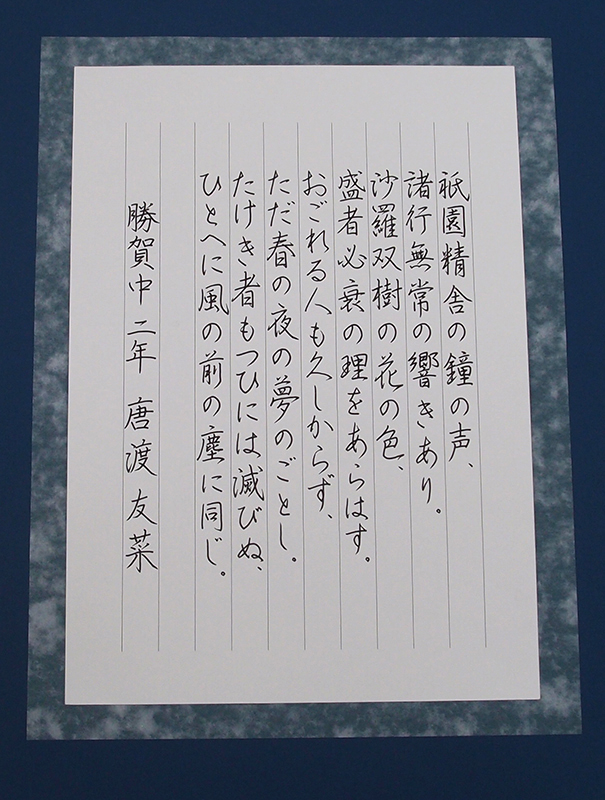 祇園精舎の鐘の声、
諸行無常の響きあり。
沙羅双樹の花の色、
盛者必衰の理をあらはす。
おごれる人も久しからず、
ただ春の夜の夢のごとし。
たけき者もつひには滅びぬ、
ひとへに風の前の塵に同じ。
勝賀中二年 唐渡友菜